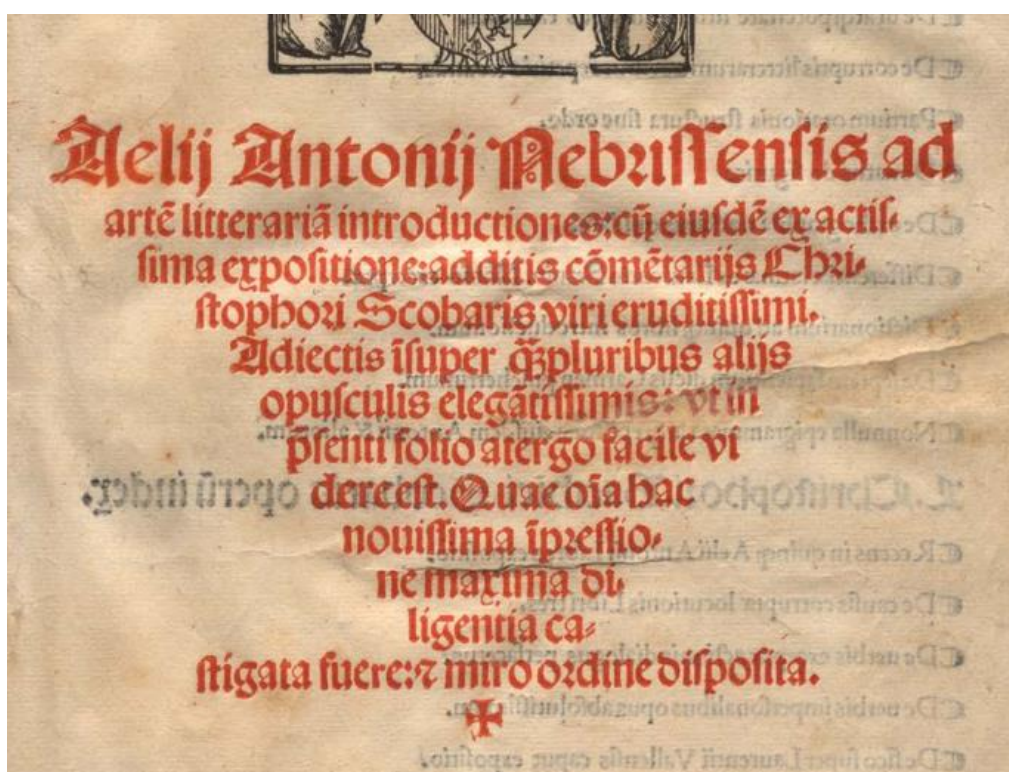 Aelij Antonij Nebrissensis ad
artē litterariā introductiones: cū eiusdē exactis⸗
sima expositione: additis cōmētarijs Chri⸗
stophori Scobaris viri eruditissimi.
Adiectis īsuper q̄⸗pluribus alijs
opusculis elegātissimis: vt in
p̄senti folio atergo facile vi
dere est. Quae oīa hac
nouissima īpressio⸗
ne maxima di⸗
ligentia ca⸗
stigata fuere: ⁊ miro ordine disposita.
✠